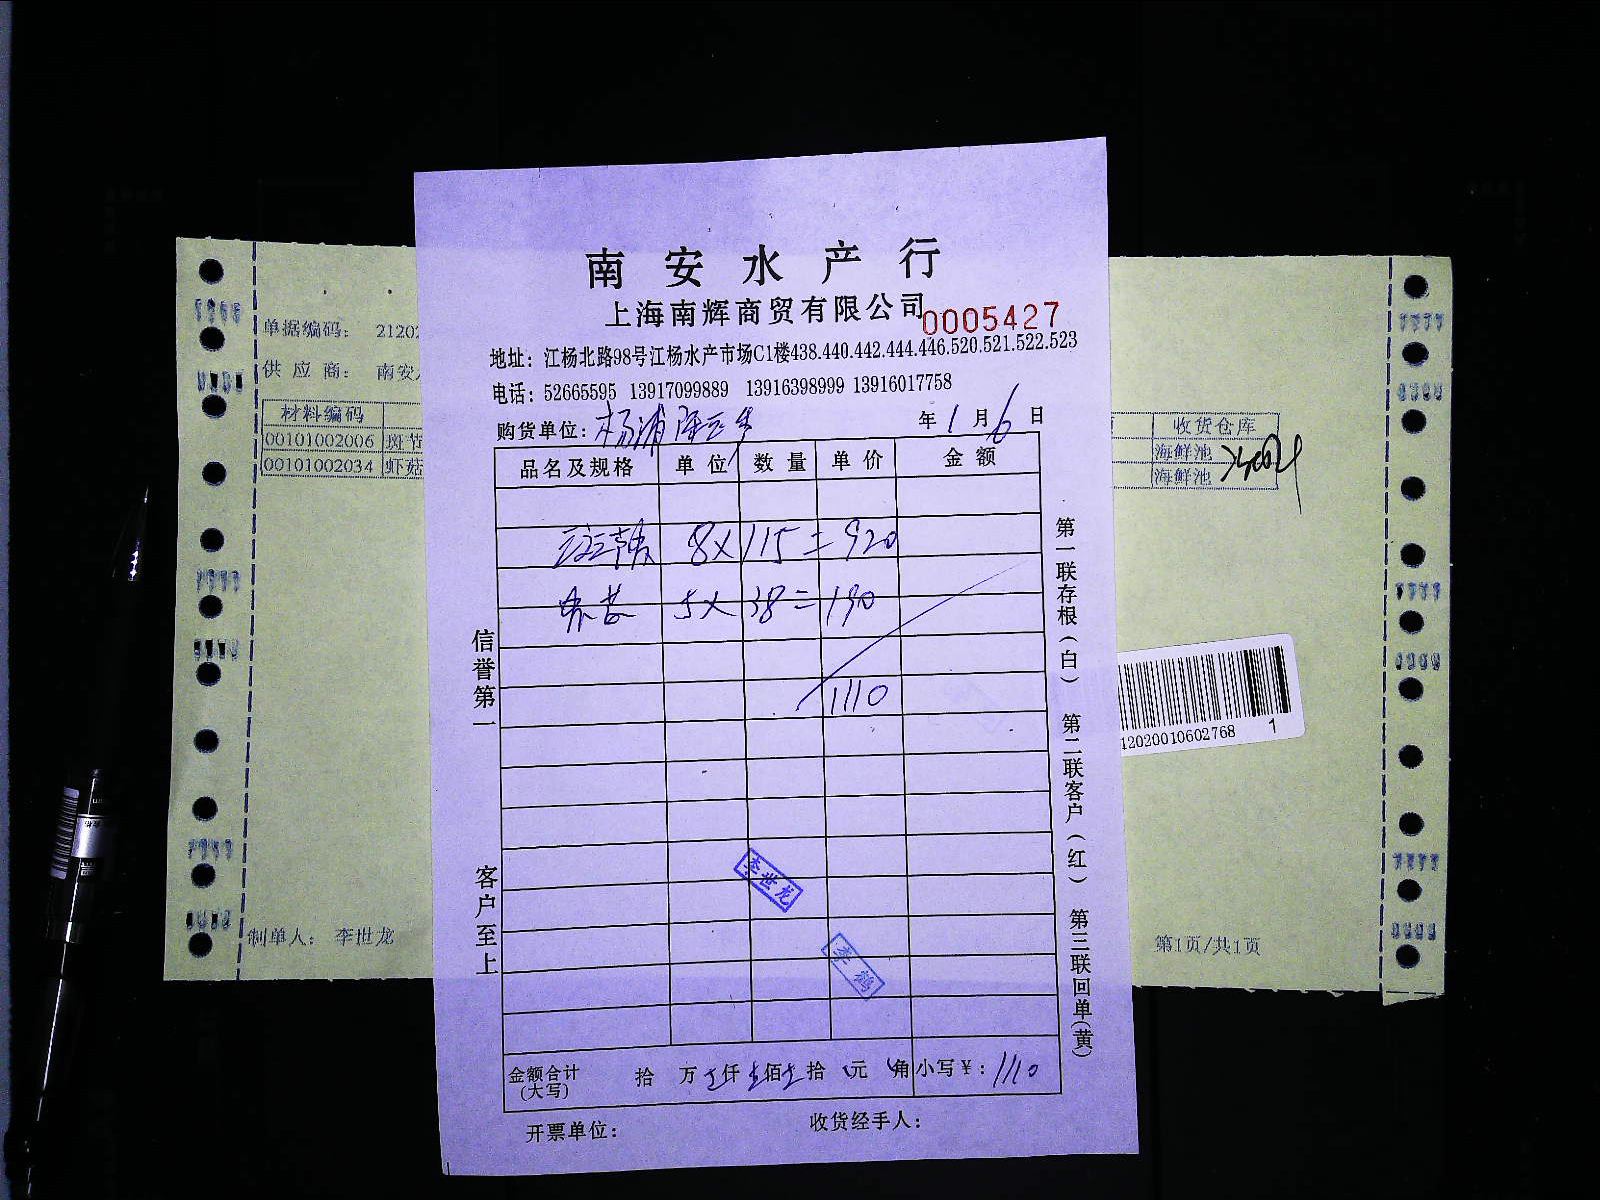 南安水产行
上海南辉商贸有限公司
0005427
地址：江杨北路98号江杨水产市场C1楼438.440.442.444.446.520.521.522.523
电话：52665595 13917099889 13916398999 13916017758
购货单位：杨浦 年1月6日
品名及规格 单位 数量 单价 金额
8×115=920
5×38=190
1110
金额合计(大写) 拾 万 仟 佰 拾 元 角 小写¥：1110
开票单位： 收货经手人：
信誉第一 客户至上
第一联存根(白) 第二联客户(红) 第三联回单(黄)
李世龙
李鹤
单据编码： 21202
供应商： 南安
材料编码
00101002006 斑节
00101002034 虾菇
制单人： 李世龙
收货仓库
海鲜池
海鲜池
12020010602768 1
第1页/共1页